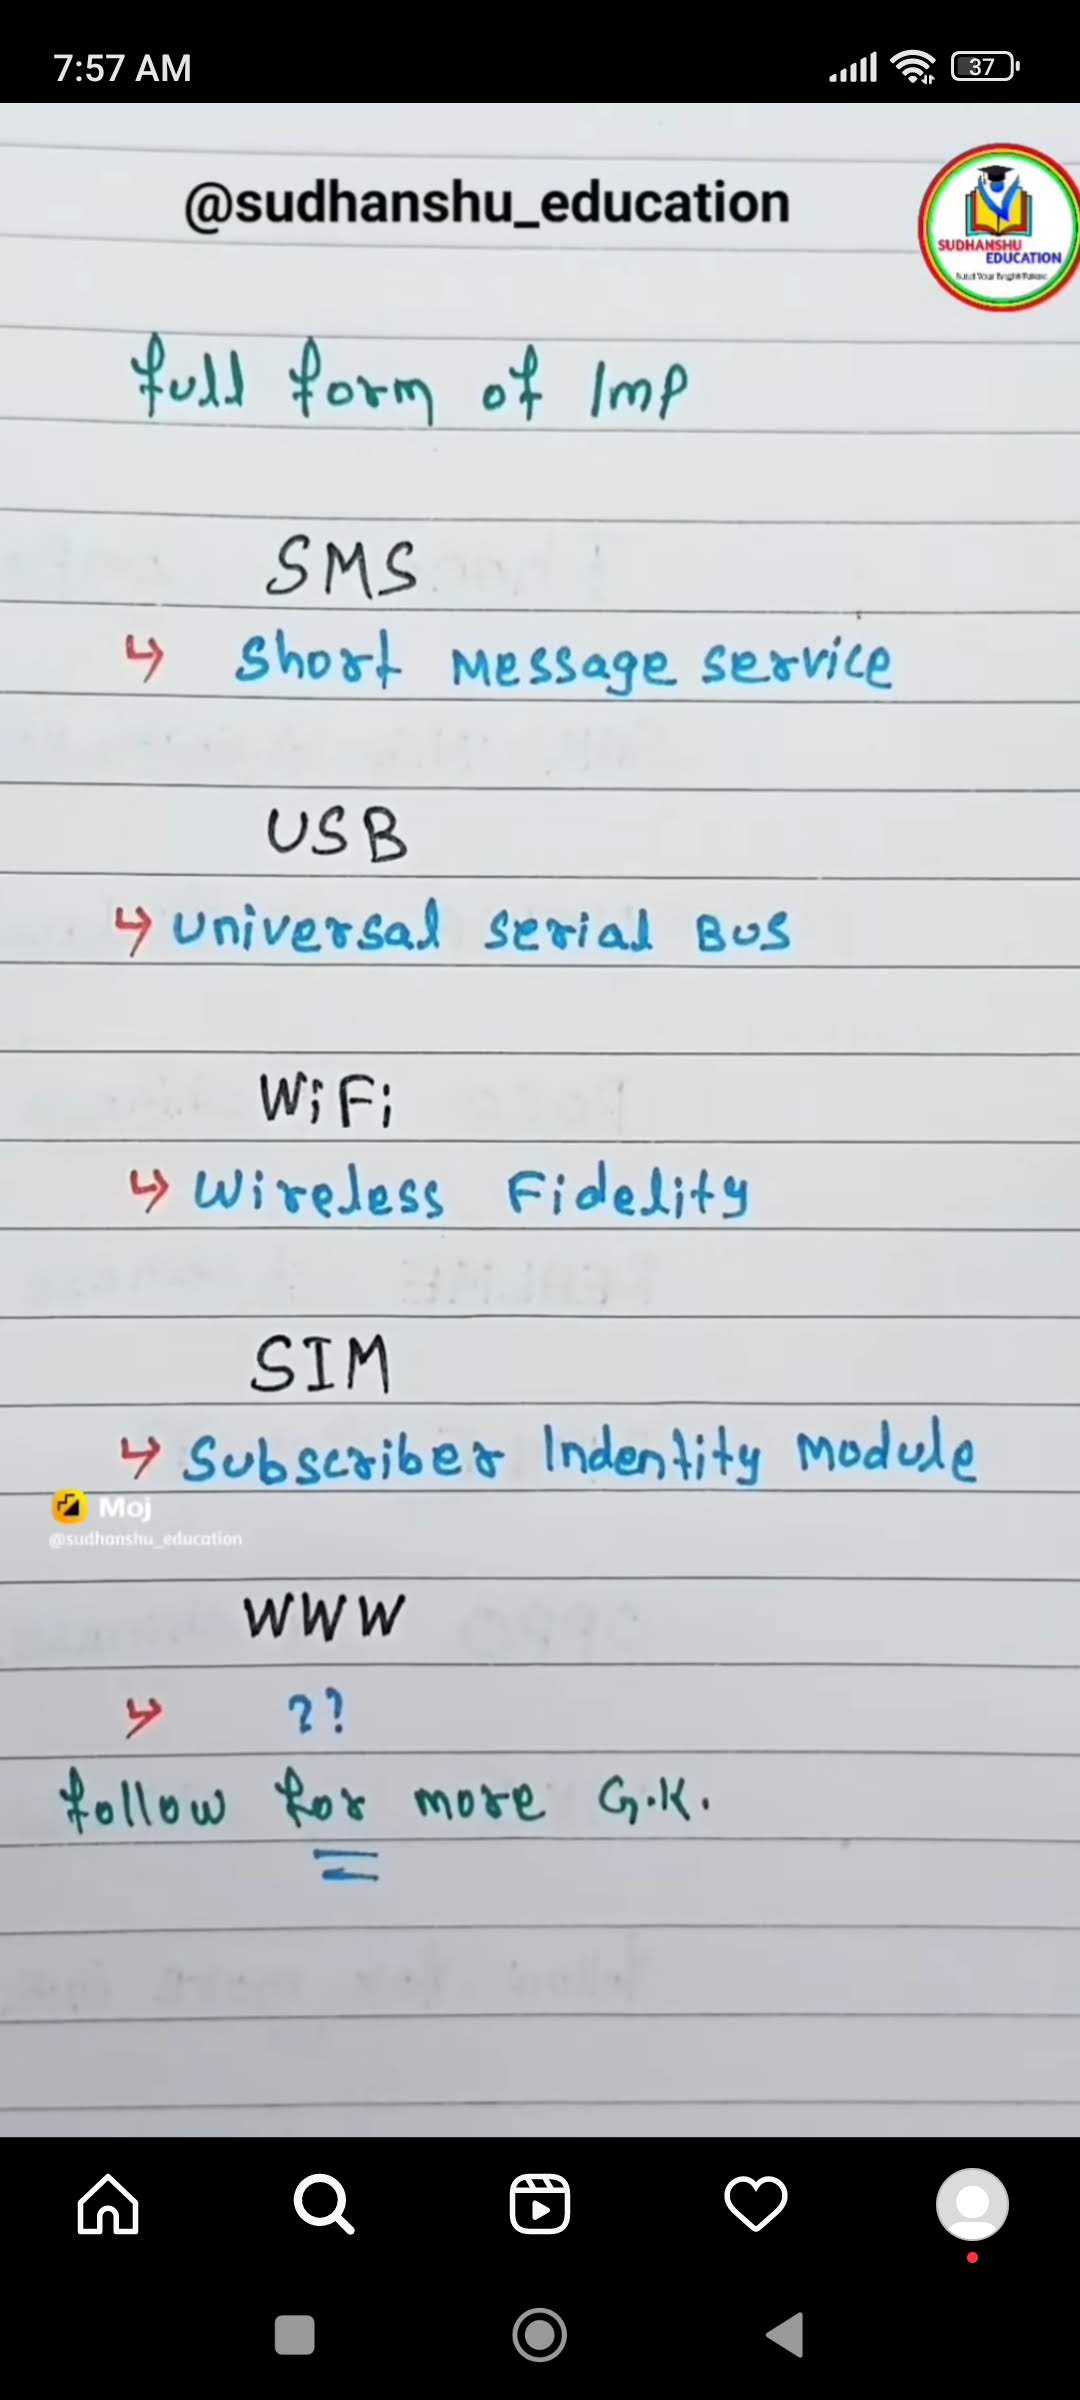 7:57 AM
37
@sudhanshu_education
SUDHANSHU
EDUCATION
Build Your Bright Future
full form of Imp
SMS
↳ Short Message Service
USB
↳ Universal Serial Bus
WiFi
↳ Wireless Fidelity
SIM
↳ Subscriber Indentity Module
Moj
@sudhanshu_education
WWW
↳ ??
follow for more G.K.